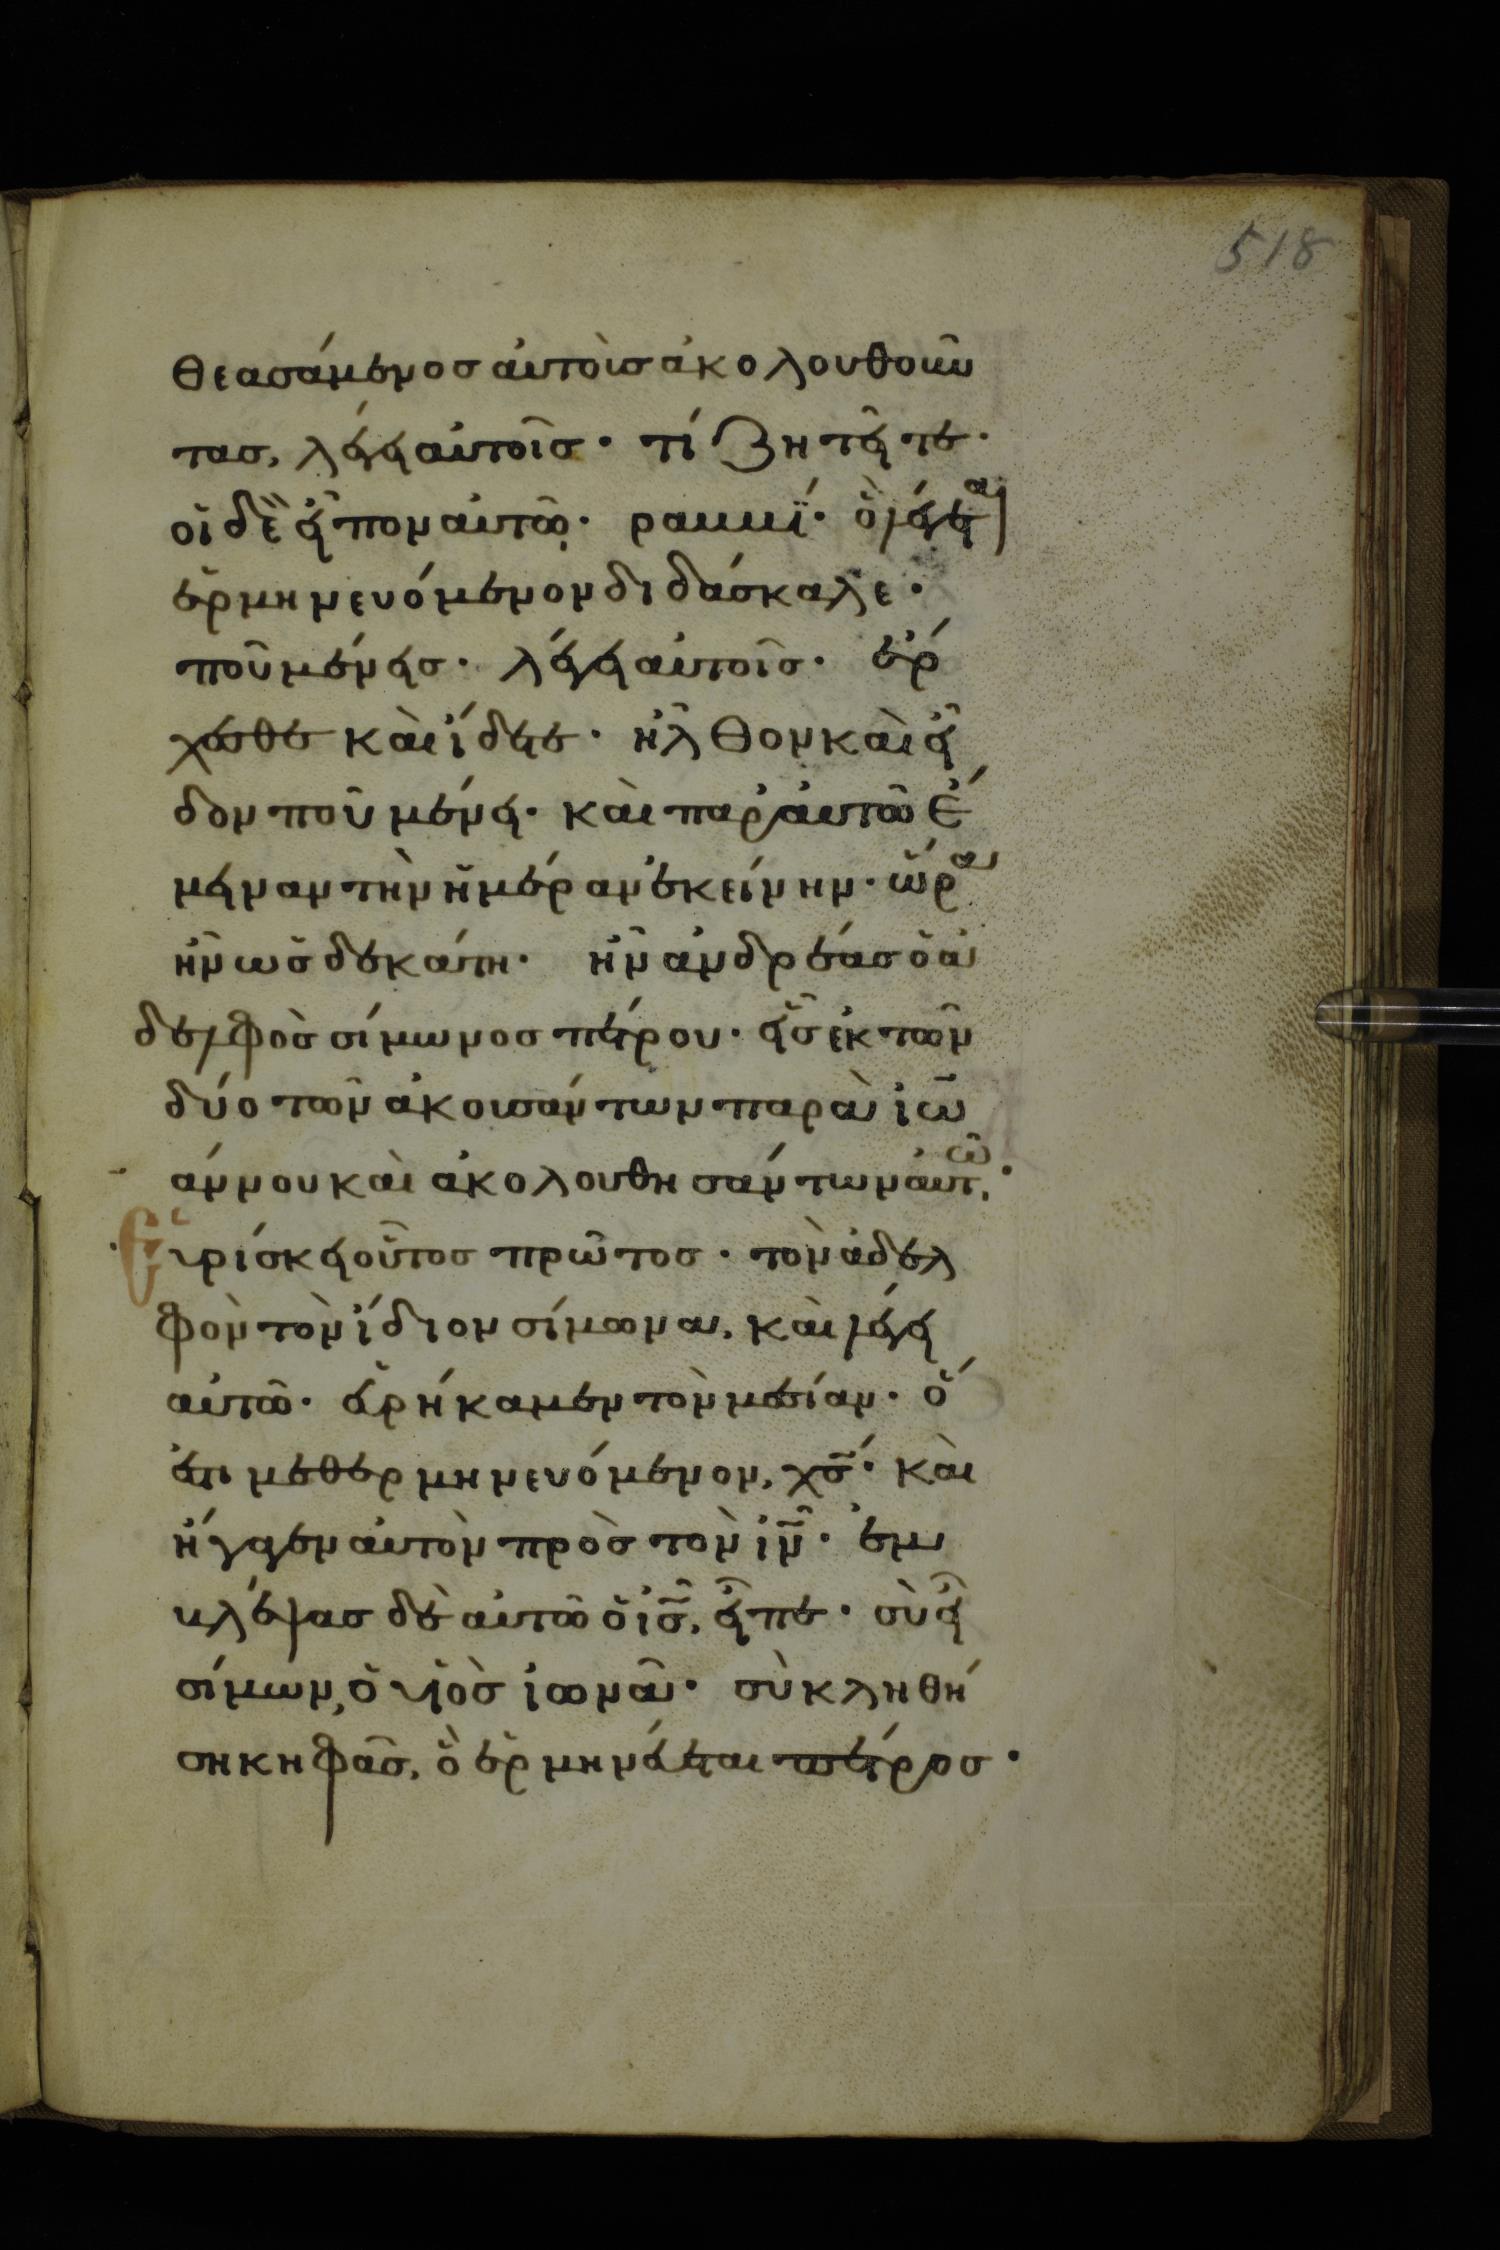 518
θεασάμενος αὐτοὺς ἀκολουθοῦν
τας, λέγει αὐτοῖς· τί ζητεῖτε·
οἱ δὲ εἶπον αὐτῶ· ραββΐ· ὃ λέγεται
ἑρμηνευόμενον διδάσκαλε·
ποῦ μένεις· λέγει αὐτοῖς· ἔρ
χεσθε καὶ ἴδετε· ἦλθον καὶ εἶ
δον ποῦ μένει· καὶ παρ' αὐτῶ ἔ
μειναν τὴν ἡμέραν ἐκείνην· ὥρα
ἦν ὡς δεκάτη· ἦν ἀνδρέας ὁ ἀ
δελφὸς σίμωνος πέτρου· εἷς ἐκ τῶν
δύο τῶν ἀκουσάντων παρὰ ἰω
άννου καὶ ἀκολουθησάντων αὐτῶ·
Εὑρίσκει οὗτος πρῶτος· τὸν ἀδελ
φὸν τὸν ἴδιον σίμωνα, καὶ λέγει
αὐτῶ· εὑρήκαμεν τὸν μεσίαν· ὅ
ἐστι μεθερμηνευόμενον, χς· καὶ
ἤγαγεν αὐτὸν πρὸς τὸν ἰν· ἐμ
βλέψας δὲ αὐτῶ ὁ ἰς, εἶπε· σὺ εἶ
σίμων, ὁ υἱὸς ἰωνᾶ· σὺ κληθή
ση κηφᾶς, ὃ ἑρμηνεύεται πέτρος·